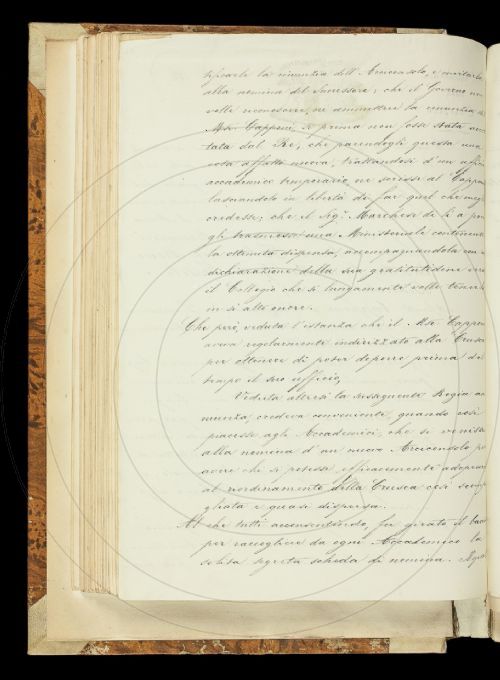 tificarle la rinuntia dell'Arciconsolo, e invitarla
alla nomina del Successore; che il Governo non
volle riconoscere, ne ammettere la rinuntia
Mse. Capponi, se prima non fosse stata
tata dal Re, che parendogli questa una
cosa affatto nuova, trattandosi d'un
accademico temporario, ne scrisse al Cappon
lasciandolo in libertà di far quel che
credesse; che il Sigr. Marchese di lì a po
gli trasmesse una Ministeriale
la ottenuta dispensa, accompagnandola con
dichiarazione della sua gratitudine
il Collegio che sì lungamente volle
in sì alto onore.
Che però, veduta l'istanza che il Mse. Cappon
aveva regolarmente indirizzato alla Crusca
per ottenere di poter deporre prima del
tempo il suo ufficio,
Veduta altresì la susseguente Regia
nuenza, credeva conveniente, quando così
piacesse agli Accademici, che si venisse
alla nomina d'un nuovo Arciconsolo
avere chi si potesse efficacemente
al riordinamento della Crusca così
gliata e quasi dispersa.
Al che tutti acconsentendo, fu girato il
per raccogliere da ogni Accademico la
solita segreta scheda di nomina.